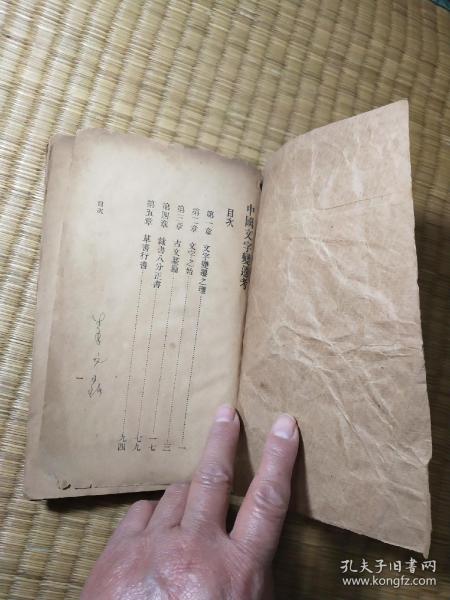 中國文字變遷考
目次
第一章 文字變遷之理……一
第二章 文字之始……三
第三章 古文篆籀……一七
第四章 隸書八分正書……七九
第五章 草書行書……九四
目次
一
孔夫子旧书网
www.kongfz.com